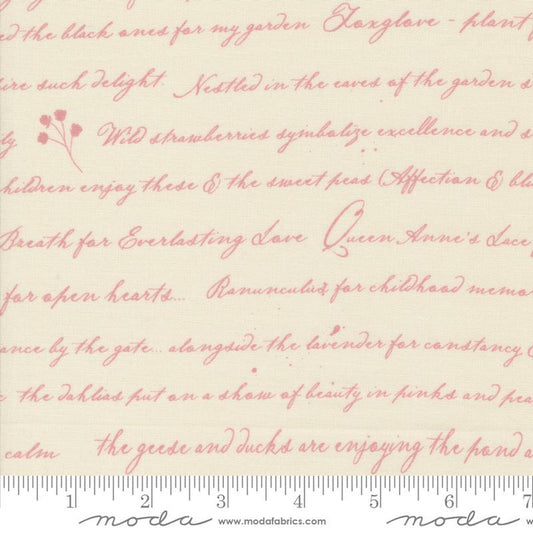 ed the black ones for my garden Foxglove - plant
ire such delight. Nestled in the eaves of the garden s
ly Wild strawberries symbolize excellence and s
children enjoy these & the sweet peas (Affection & bli
Breath for Everlasting Love Queen Anne's Lace
for open hearts... Ranunculus for childhood memo
ance by the gate... alongside the lavender for constancy &
the dahlias put on a show of beauty in pinks and pea
calm the geese and ducks are enjoying the pond a
1 2 3 4 5 6 7
moda www.modafabrics.com moda